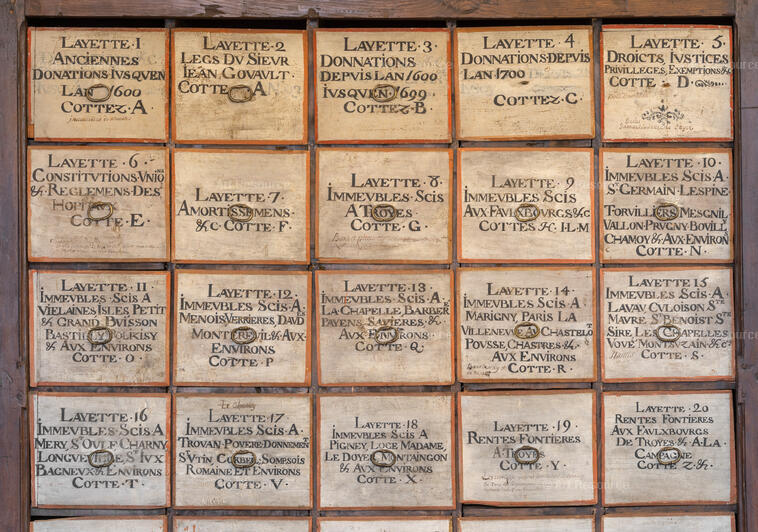 LAYETTE · 1
ANCIENNES
DONATIONS IVSQVEN
LAN 1600
COTTEZ · A
LAYETTE · 2
LEGS DV SIEVR
IEAN GOVAULT ·
COTTE A
LAYETTE · 3
DONNATIONS
DEPVIS LAN 1600
IVSQVEN 1699
COTTEZ · B
LAYETTE · 4
DONNATIONS · DEPVIS
LAN 1700
COTTEZ · C
LAYETTE · 5
DROICTS IVSTICES
PRIVILLEGES, EXEMPTIONS &
COTTE · D
LAYETTE · 6
CONSTITVTIONS VNIO
& REGLEMENS DES
COTTE · E
LAYETTE · 7
AMORTISSEMENS ·
&c · COTTE · F
LAYETTE · 8
IMMEVBLES · SCIS
A TROYES
COTTE · G
LAYETTE · 9
IMMEVBLES · SCIS
AVX · FAVLXBOVRGS · &c
COTTES H · I L · M
LAYETTE · 10
IMMEVBLES SCIS · A
St GERMAIN · LESPINE
TORVILLIERS MESGNIL
VALLON · PRVGNY BOVILL
CHAMOY & AVX · ENVIRON
COTTE · N
LAYETTE · 11
IMMEVBLES SCIS A
VIELAINES ISLES PETIT
& GRAND BVISSON
& AVX ENVIRONS
COTTE · O
LAYETTE · 12
IMMEVBLES SCIS · A
MENOIS VERRIERES, DAVD
ENVIRONS
COTTE · P
LAYETTE · 13
IMMEVBLES · SCIS · A
LA · CHAPELLE, BARBER
PAYENS, SAVIERES, &
AVX ENVIRONS
COTTE · Q
LAYETTE · 14
IMMEVBLES SCIS · A
MARIGNY, PARIS LA
VILLENEVVE AV CHASTELO
POVSSE, CHASTRES, &
AVX ENVIRONS
COTTE · R
LAYETTE · 15
IMMEVBLES SCIS · A
LAVAV, CVLOISON Ste
MAVRE St BENOIST St
SIRE LES CHAPELLES
VOVÉ MONTSVZAIN · &c
COTTE · S
LAYETTE · 16
IMMEVBLES SCIS A
MERY, St OVLF CHARNY
BAGNEVX & ENVIRONS
COTTE · T
LAYETTE · 17
IMMEVBLES SCIS · A ·
SOMPSOIS
ROMAINE ET ENVIRONS
COTTE · V
LAYETTE · 18
IMMEVBLES SCIS A
PIGNEY, LOGE MADAME,
LE DOYER, MONTAINGON
& AVX ENVIRONS
COTTE · X
LAYETTE · 19
RENTES FONTIERES
A TROYES
COTTE · Y
LAYETTE · 20
RENTES FONTIERES
AVX FAVLXBOVRGS
DE TROYES & A · LA ·
CAMPAGNE
COTTE Z · &